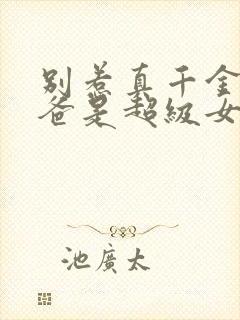 别惹真千金
爸是超级女
池廣太